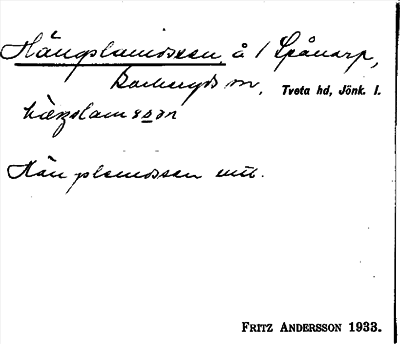 Hängslamossen, å 1 Spånarp,
Barkeryds sn, Tveta hd, Jönk. l.
hæŋslamsson
Hängslamossen utt.
FRITZ ANDERSSON 1933.